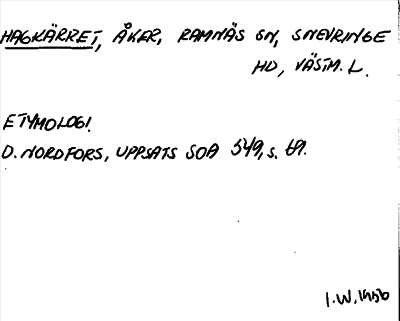 HAGKÄRRET, ÅKER, RAMNÄS SN, SNEVRINGE
HD, VÄSTM. L.
ETYMOLOGI.
D. NORDFORS, UPPSATS SOA 549, S. 69.
I.W. 1956